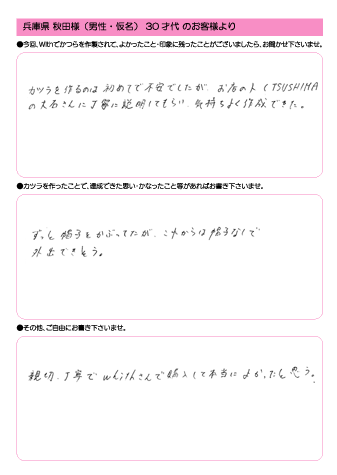 兵庫県 秋田様（男性・仮名） 30才代 のお客様より
●今回、Withでかつらを作製されて、よかったこと・印象に残ったことがございましたら、お聞かせ下さいませ。
カツラを作るのは初めてで不安でしたが、お店の人（TSUSHIMA
の大石さんに丁寧に説明してもらい、気持ちよく作成できた。
●カツラを作ったことで、達成できた思い・かなったこと等があればお書き下さいませ。
ずっと帽子をかぶってたが、これからは帽子なしで
外出できそう。
●その他、ご自由にお書き下さいませ。
親切、丁寧で whithさんで購入して本当によかったと思う。